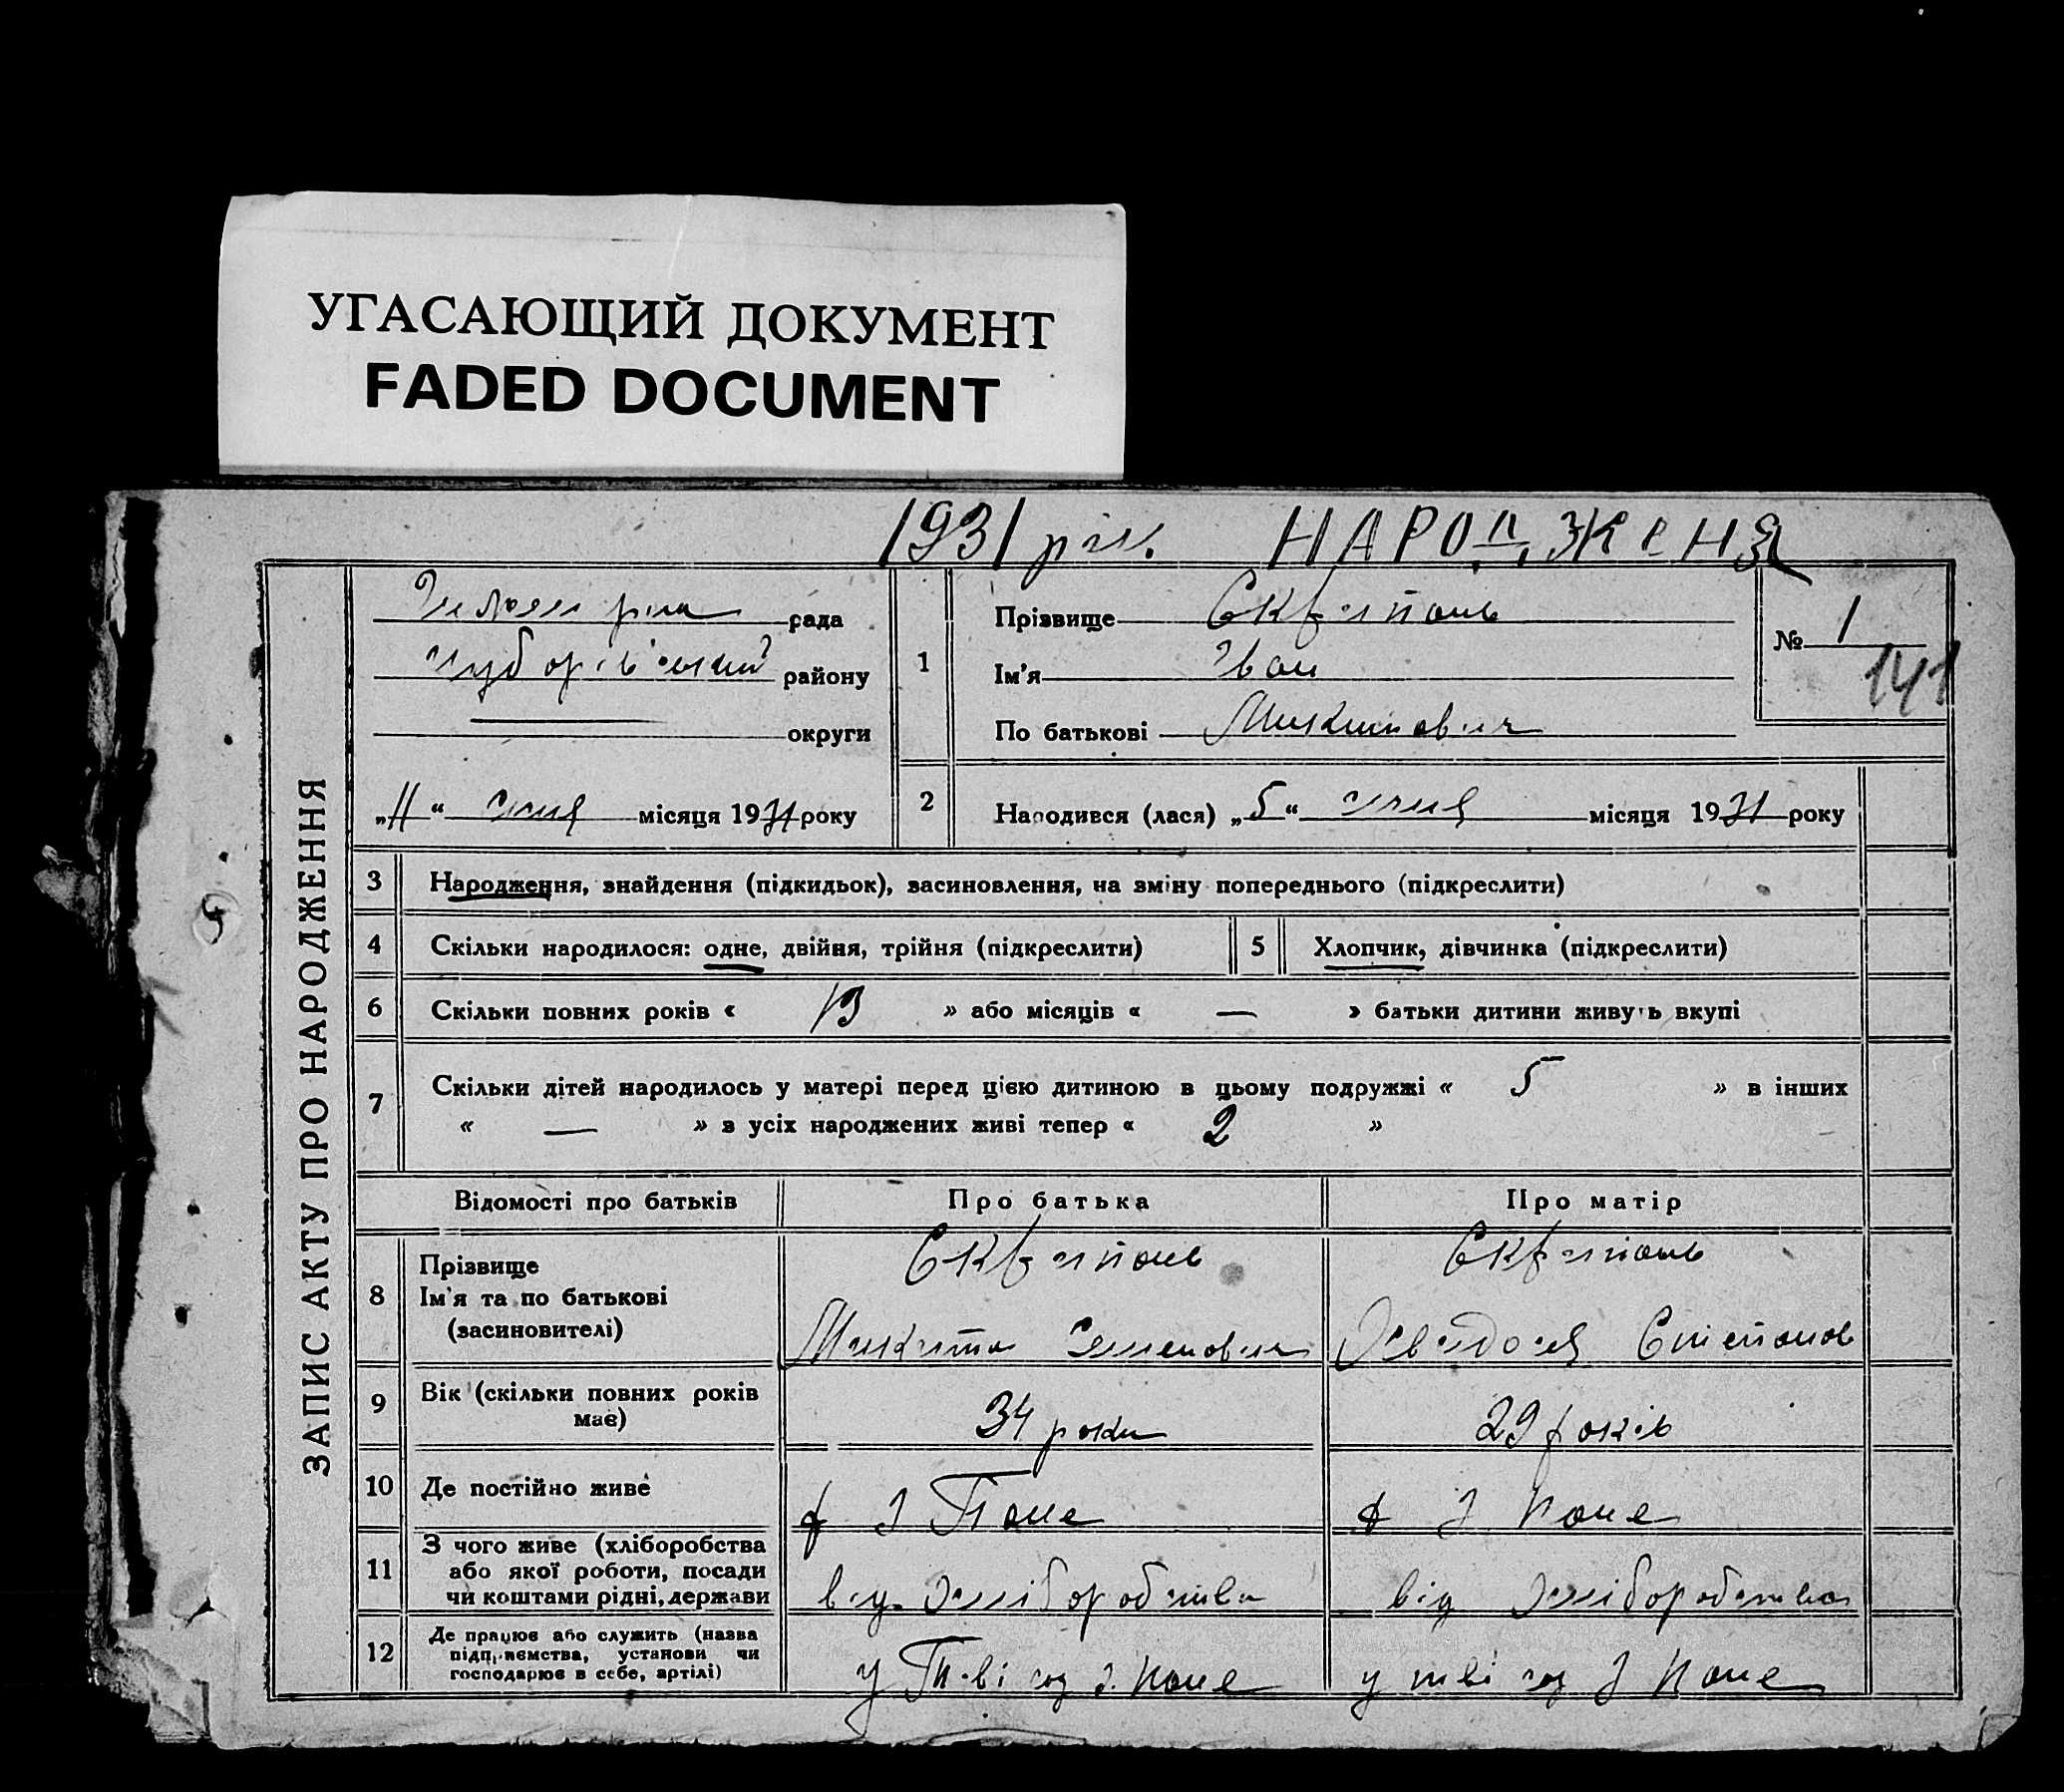 УГАСАЮЩИЙ ДОКУМЕНТ
FADED DOCUMENT
1931 рік. НАРОДЖЕНЯ
ЗАПИС АКТУ ПРО НАРОДЖЕННЯ
рада
району
округи
„11“ січня місяця 1931 року
1
Прізвище Скрипань
Ім'я Іван
По батькові Микитович
№ 1
141
2
Народився (лася) „5“ січня місяця 1931 року
3 Народження, знайдення (підкидьок), засиновлення, на зміну попереднього (підкреслити)
4 Скільки народилося: одне, двійня, трійня (підкреслити)
5 Хлопчик, дівчинка (підкреслити)
6 Скільки повних років « 13 » або місяців « — » батьки дитини живуть вкупі
7 Скільки дітей народилось у матері перед цією дитиною в цьому подружжі « 5 » в інших
« — » з усіх народжених живі тепер « 2 »
Відомості про батьків Про батька Про матір
8
Прізвище
Ім'я та по батькові
(засиновителі)
Скрипань
Микита Семенович
Скрипань
Степанов
9
Вік (скільки повних років
має)
34 роки
29 років
10 Де постійно живе
11
З чого живе (хліборобства
або якої роботи, посади
чи коштами рідні, держави
від хліборобства
від хліборобства
12
Де працює або служить (назва
підприємства, установи чи
господарює в себе, артілі)